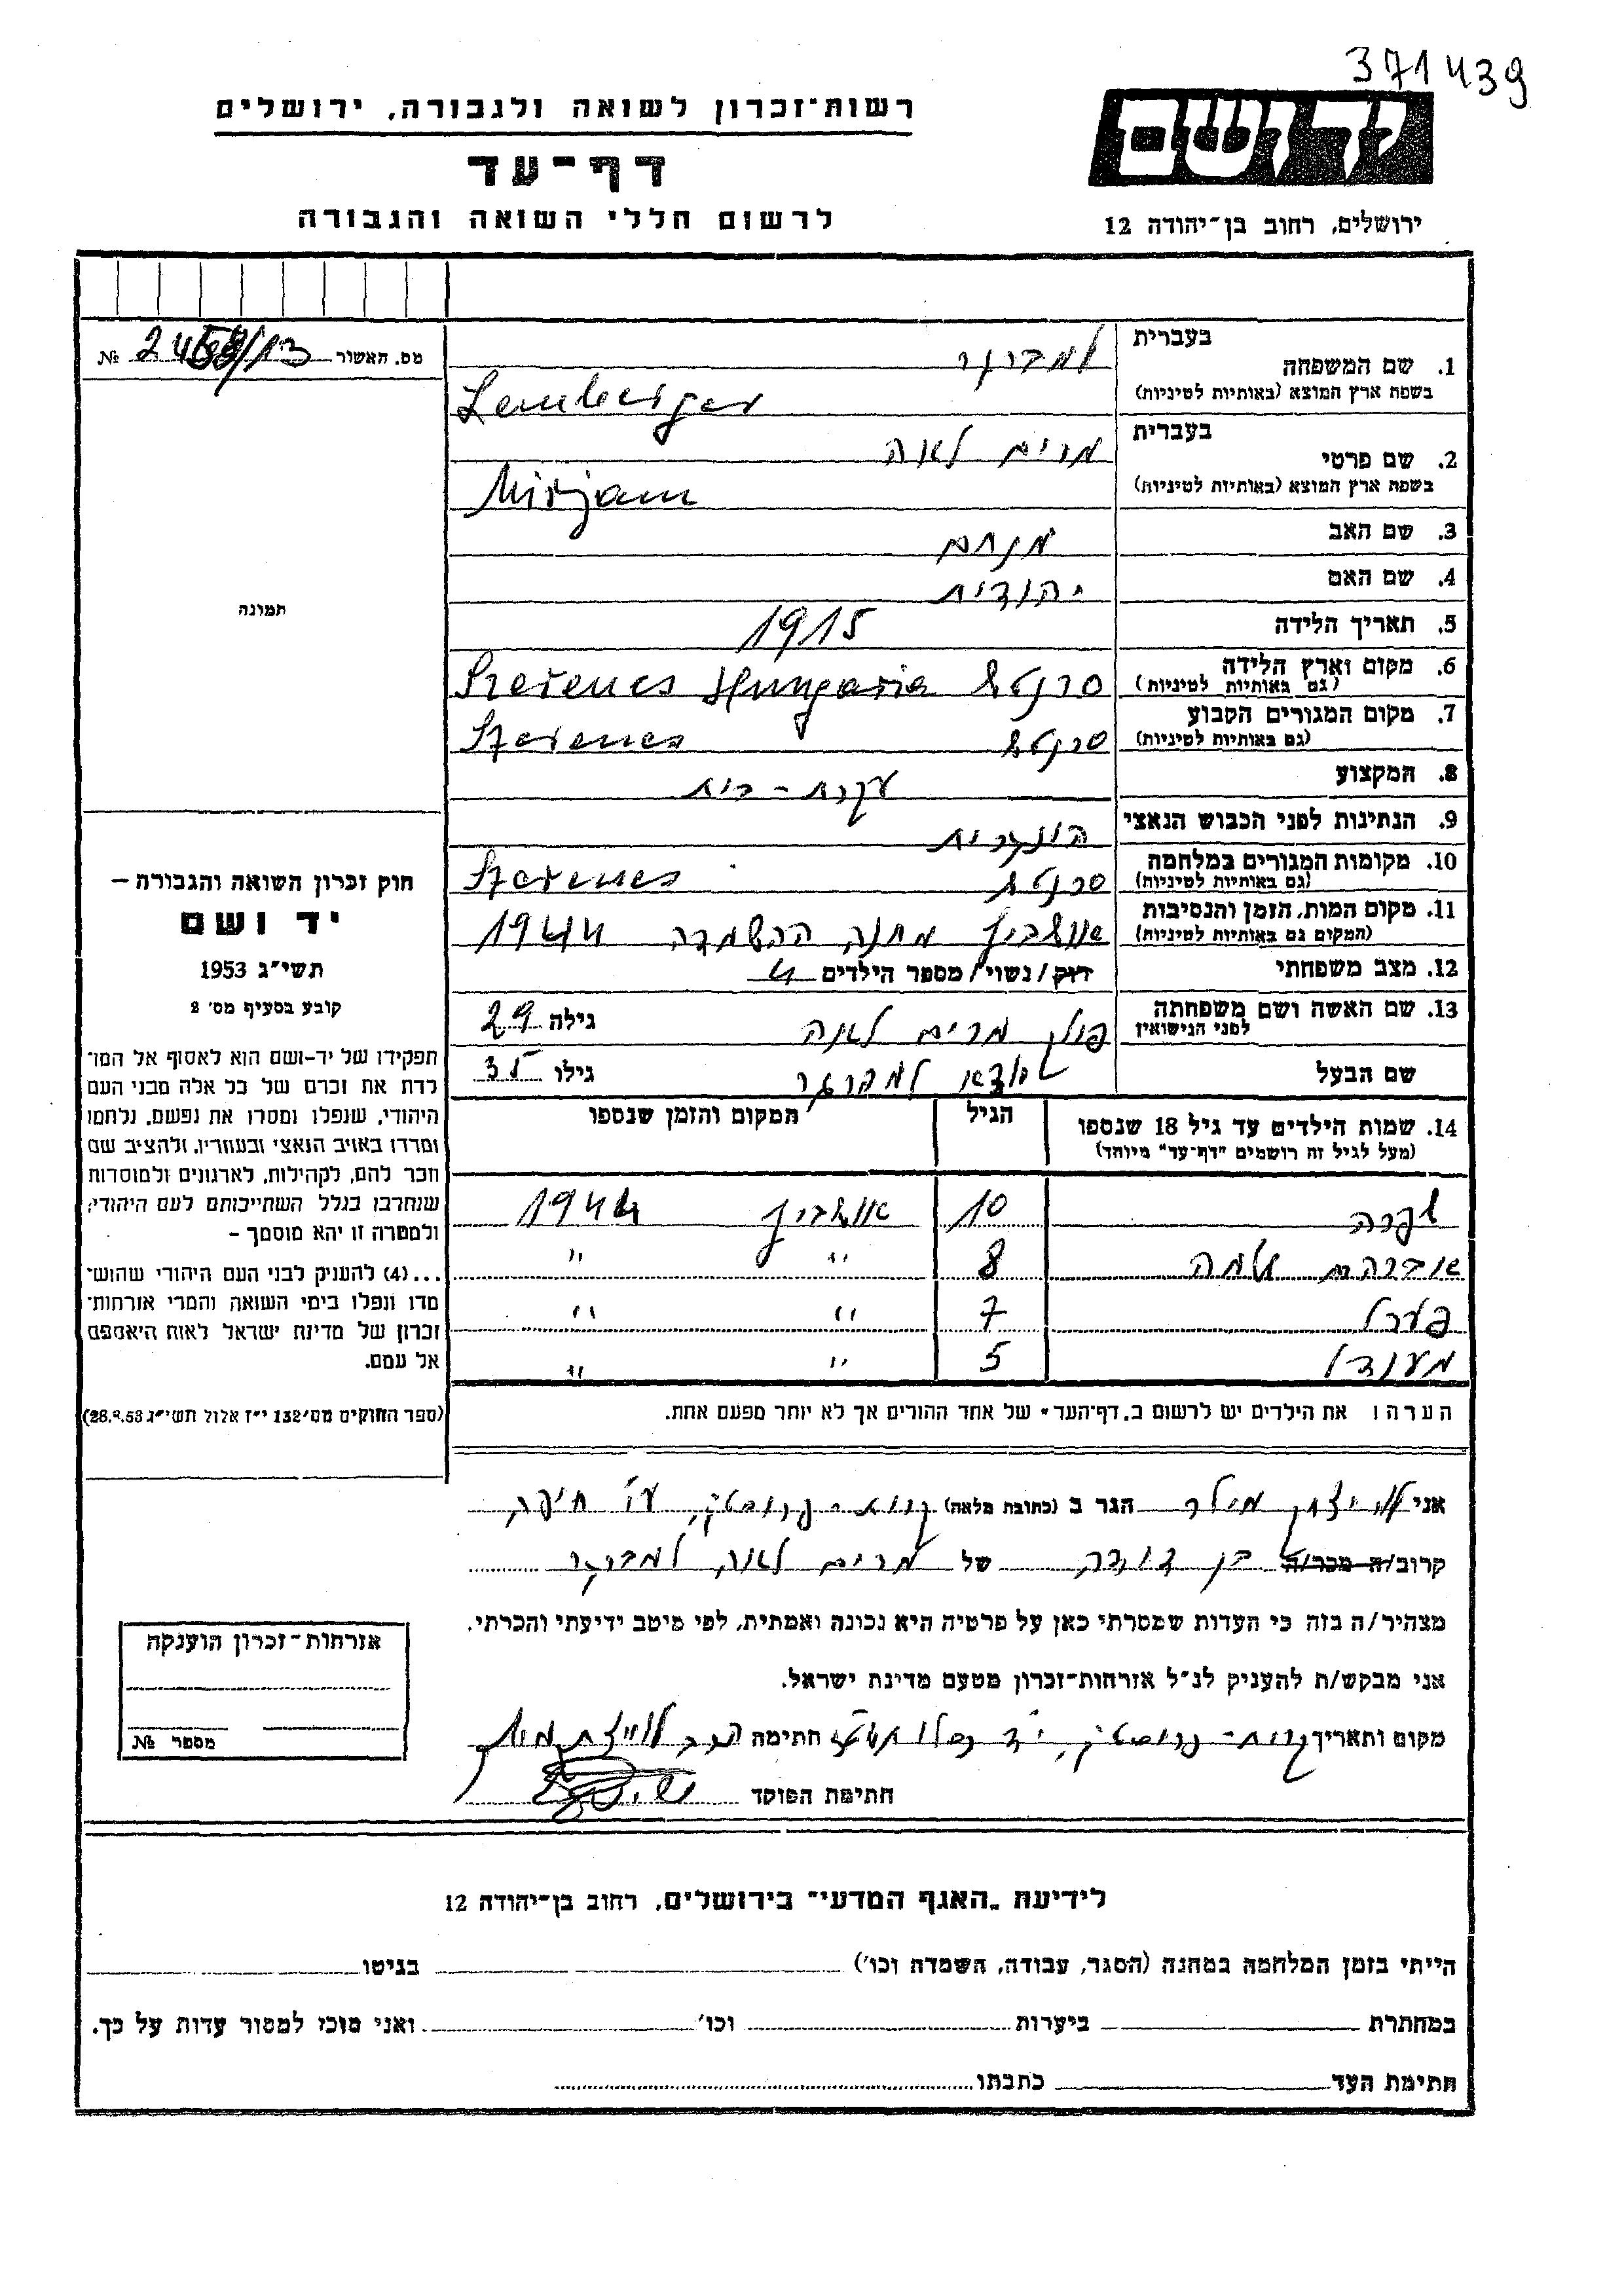 371439
רשות־זכרון לשואה ולגבורה, ירושלים
יד ושם
דף־עד
לרשום חללי השואה והגבורה
ירושלים, רחוב בן־יהודה 12
מס. האשור № 24
בעברית למברגר
1. שם המשפחה
בשפת ארץ המוצא (באותיות לטיניות) Lemberger
בעברית מרים לאה
2. שם פרטי
בשפת ארץ המוצא (באותיות לטיניות) Mirjam
3. שם האב מנחם
4. שם האם יהודית
5. תאריך הלידה 1915
6. מקום וארץ הלידה
(גם באותיות לטיניות) סרנטש Szerencs Hungaria
7. מקום המגורים הקבוע
(גם באותיות לטיניות) סרנטש Szerencs
8. המקצוע עקרת-בית
9. הנתינות לפני הכבוש הנאצי הונגרית
10. מקומות המגורים במלחמה
(גם באותיות לטיניות) סרנטש Szerencs
11. מקום המות, הזמן והנסיבות
(המקום גם באותיות לטיניות) אושביץ מחנה ההשמדה 1944
12. מצב משפחתי רווק/נשוי/מספר הילדים 4
13. שם האשה ושם משפחתה
לפני הנישואין מרים לאה גילה 29
שם הבעל למברגר גילו 35
14. שמות הילדים עד גיל 18 שנספו
(מעל לגיל זה רושמים "דף־עד" מיוחד)
הגיל המקום והזמן שנספו
10 אושביץ 1944
אברהם שלמה 8 " "
פערל 7 " "
מענדל 5 " "
הערה: את הילדים יש לרשום ב„דף־העד" של אחד ההורים אך לא יותר מפעם אחת.
תמונה
חוק זכרון השואה והגבורה –
יד ושם
תשי"ג 1953
קובע בסעיף מס' 2
תפקידו של יד-ושם הוא לאסוף אל המו־
לדת את זכרם של כל אלה מבני העם
היהודי, שנפלו ומסרו את נפשם, נלחמו
ומרדו באויב הנאצי ובעוזריו, ולהציב שם
וזכר להם, לקהילות, לארגונים ולמוסדות
שנחרבו בגלל השתייכותם לעם היהודי;
ולמטרה זו יהא מוסמך –
...(4) להעניק לבני העם היהודי שהוש־
מדו ונפלו בימי השואה והמרי אזרחות־
זכרון של מדינת ישראל לאות היאספם
אל עמם.
(ספר החוקים מס' 132 י"ז אלול תשי"ג 28.8.53)
אני הגר ב (כתובת מלאה) קרית- ע"י חיפה
קרוב/ה מכר/ה בן דודה של מרים לאה למברגר
מצהיר/ה בזה כי העדות שמסרתי כאן על פרטיה היא נכונה ואמתית, לפי מיטב ידיעתי והכרתי.
אני מבקש/ת להעניק לנ"ל אזרחות־זכרון מטעם מדינת ישראל.
מקום ותאריך קרית- כסלו חתימה הרב
חתימת הפוקד
אזרחות־זכרון הוענקה
מספר №
לידיעת „האגף המדעי" בירושלים, רחוב בן־יהודה 12
הייתי בזמן המלחמה במחנה (הסגר, עבודה, השמדה וכו') בגיטו
במחתרת ביערות וכו' ואני מוכן למסור עדות על כך.
חתימת העד כתבתו